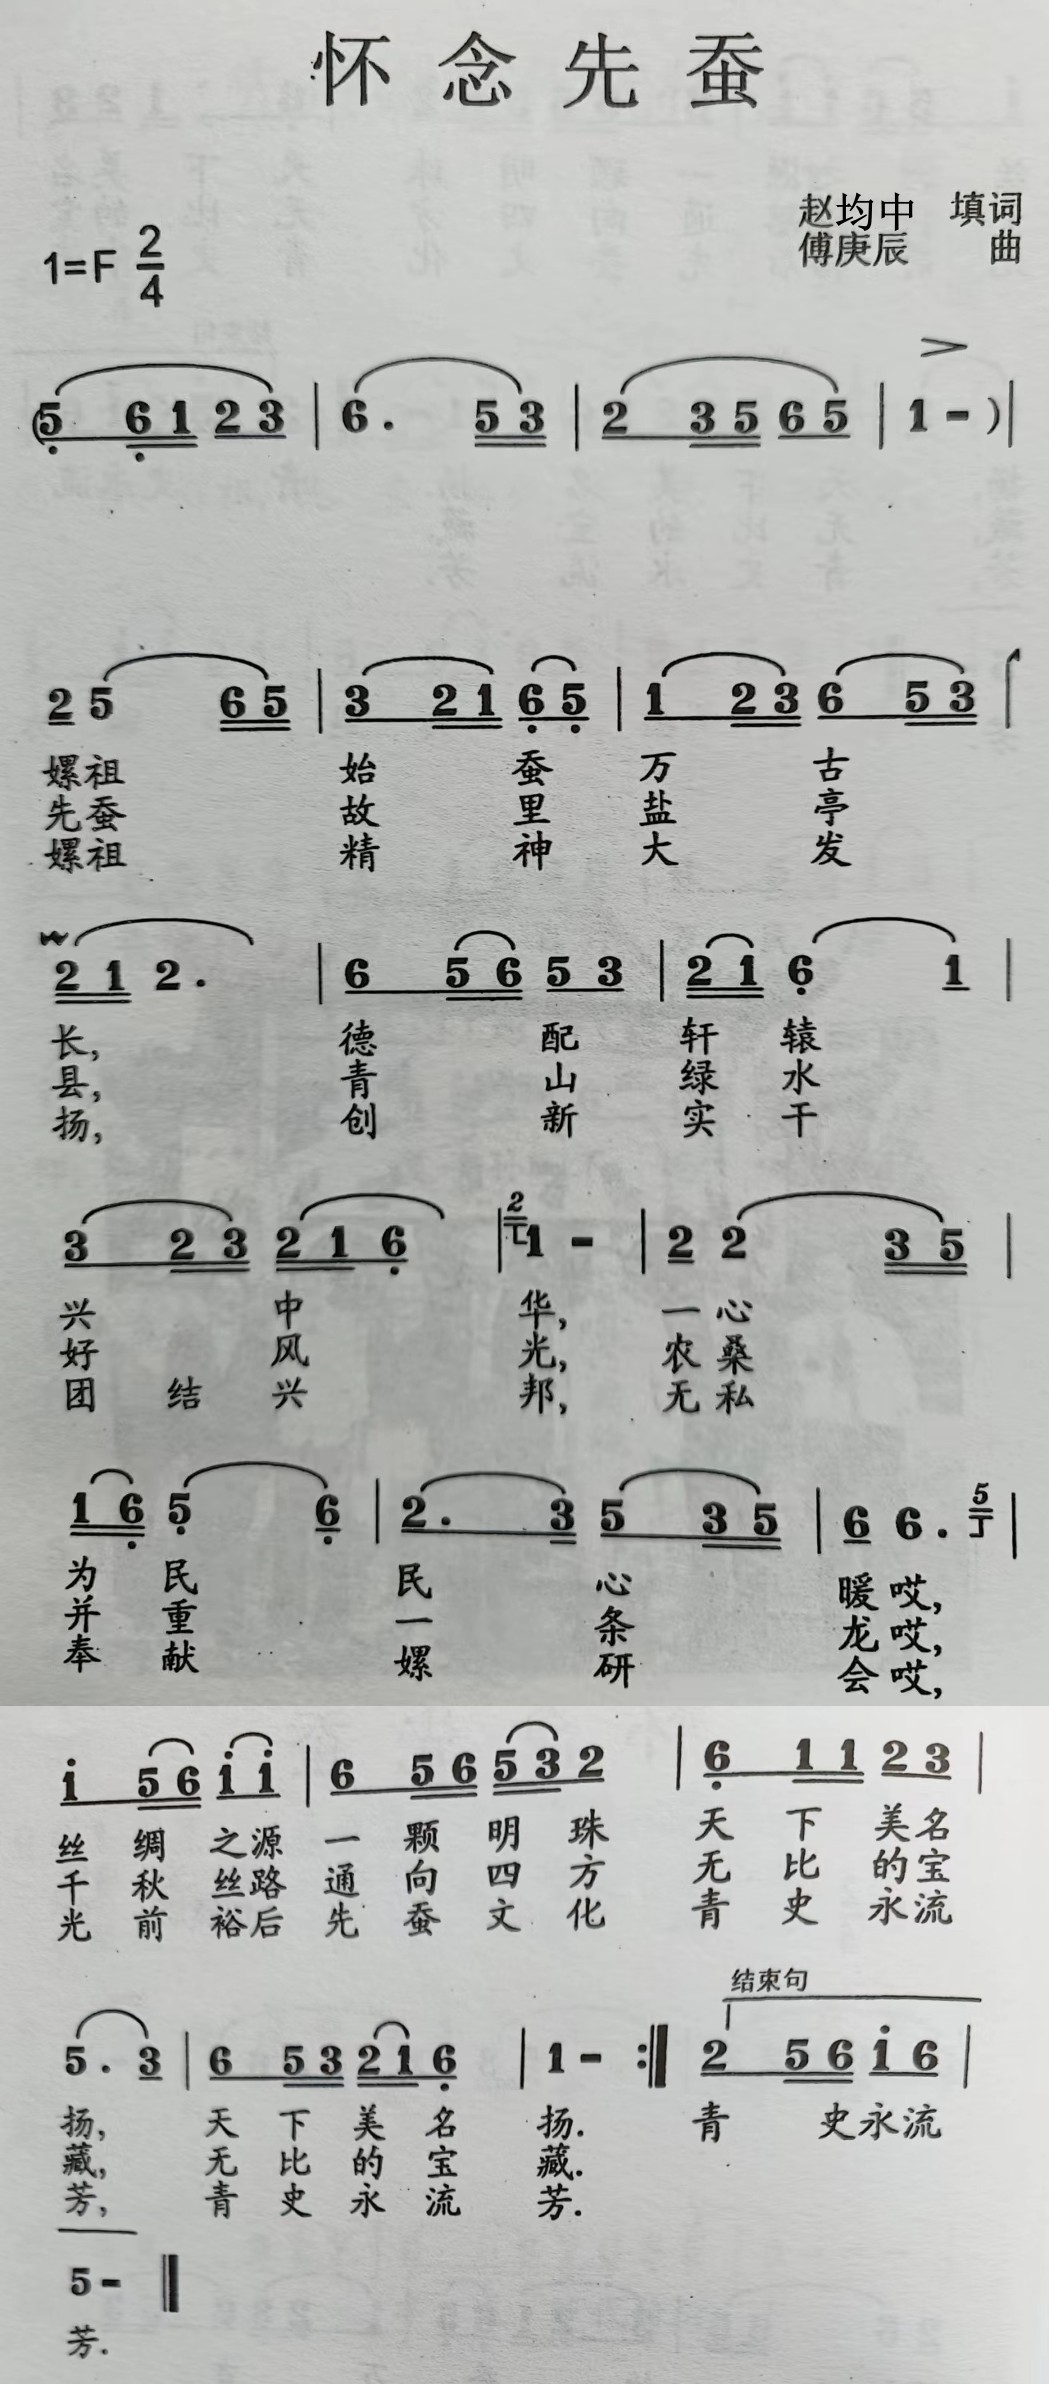 怀念先蚕
赵均中 填词
傅庚辰 曲
1=F 2/4
(5 6 1 2 3 | 6. 5 3 | 2 3 5 6 5 | 1 - )|
2 5 6 5 | 3 2 1 6 5 | 1 2 3 6 5 3 |
嫘祖 始 蚕 万 古
先蚕 故 里 盐 亭
嫘祖 精 神 大 发
2 1 2. | 6 5 6 5 3 | 2 1 6 1 |
长, 德 配 轩 辕
县, 青 山 绿 水
扬, 创 新 实 干
3 2 3 2 1 6 | 2 1 - | 2 2 3 5 |
兴 中 华, 一心
好 风 光, 农桑
团 结 兴 邦, 无私
1 6 5 6 | 2. 3 5 3 5 | 6 6. 5 |
为 民 民 心 暖哎,
并 重 一 条 龙哎,
奉 献 嫘 研 会哎,
i 5 6 i i | 6 5 6 5 3 2 | 6 1 1 2 3 |
丝 绸 之源 一 颗 明 珠 天 下 美名
千 秋 丝路 通 向 四 方 无 比 的宝
光 前 裕后 先 蚕 文 化 青 史 永流
结束句
5. 3 | 6 5 3 2 1 6 | 1 - :| 2 5 6 i 6 |
扬, 天 下 美 名 扬. 青 史永流
藏, 无 比 的 宝 藏.
芳, 青 史 永 流 芳.
5 - ‖
芳.